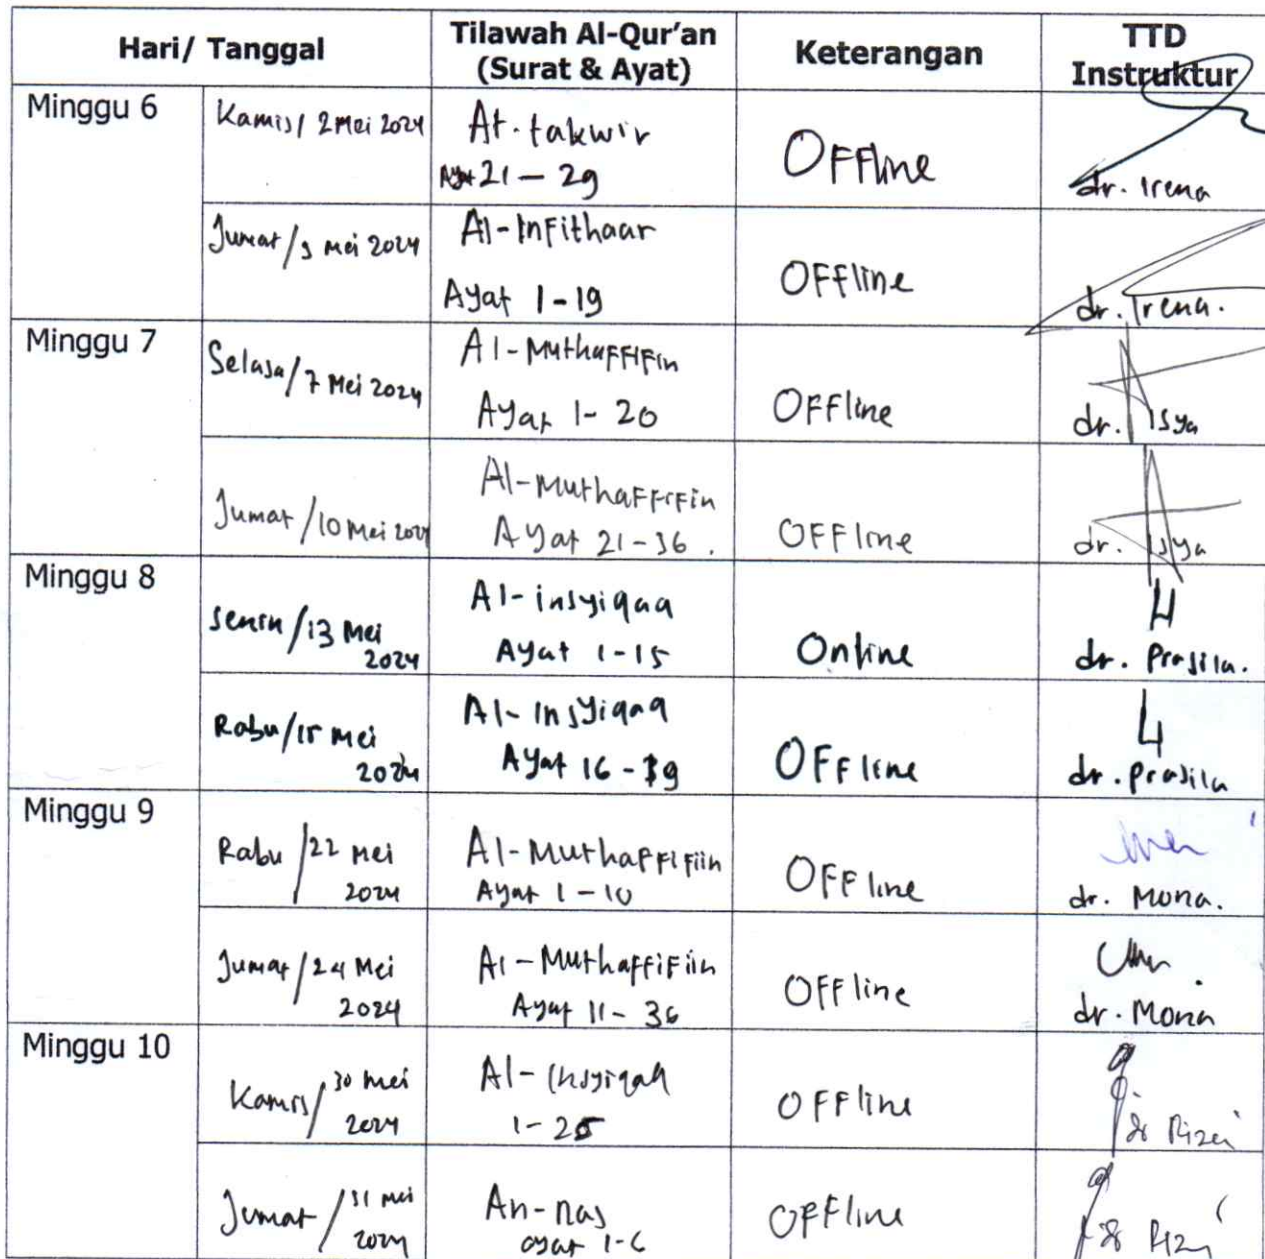 Hari/ Tanggal
Tilawah Al-Qur'an
(Surat & Ayat)
Keterangan
TTD
Instruktur
Minggu 6
Kamis/ 2 Mei 2024
At-takwir
Ayat 21 - 29
Offline
dr. Irena
Jumat/3 Mei 2024
Al-Infithaar
Ayat 1-19
Offline
dr. Irena.
Minggu 7
Selasa/7 Mei 2024
Al-Muthaffifin
Ayat 1-20
Offline
dr. Isya
Jumat/10 Mei 2024
Al-Muthaffifin
Ayat 21-36.
Offline
dr. Isya
Minggu 8
Senin/13 Mei
2024
Al-insyiqaa
Ayat 1-15
Online
dr. Prasila.
Rabu/15 Mei
2024
Al-Insyiqaq
Ayat 16-
Offline
dr. Prasila
Minggu 9
Rabu/22 Mei
2024
Al-Muthaffifiin
Ayat 1-10
Offline
dr. Mona.
Jumat/24 Mei
2024
Al-Muthaffifiin
Ayat 11-36
Offline
dr. Mona
Minggu 10
Kamis/30 Mei
2024
Al-Insyiqaq
1-25
Offline
Jumat/31 Mei
2024
An-nas
ayat 1-6
Offline